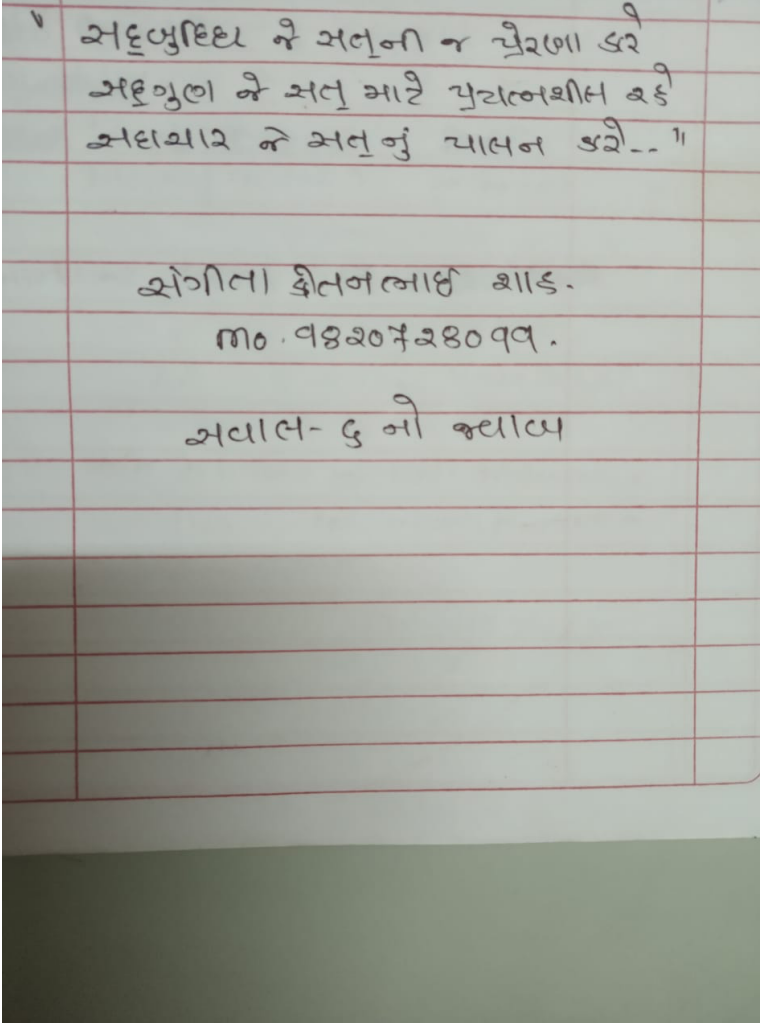 " સદ્દબુધ્ધિ જે સત્ની જ પ્રેરણા કરે
સદ્દગુણ જે સત્ માટે પ્રયત્નશીલ રહે
સદાચાર જે સત્ નું પાલન કરે-- "
સંગીતા કેતનભાઈ શાહ.
mo. ૧૪૨૦૭૨૪૦૧૧.
સવાલ- ૬ નો જવાબ